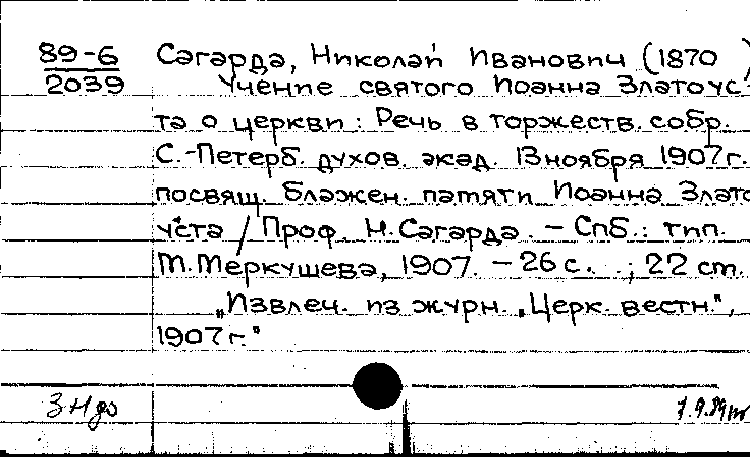 89-6 Сагарда, Николай Иванович (1870
2039 Учение святого Иоанна Златоус-
та о церкви: Речь в торжеств. собр.
С.-Петерб. духов. акад. 13 ноября 1907 г.
посвящ. блажен. памяти Иоанна Злато
уста / Проф. Н. Сагарда. – Спб.: тип.
М. Меркушева, 1907. – 26 с. .; 22 cm.
„Извлеч. из журн. „Церк. вестн.",
1907 г."